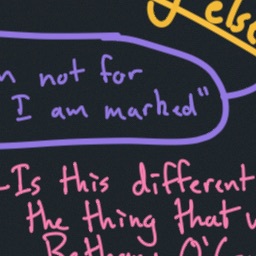 else
n not for
I am marked"
-Is this different
the thing that w
Bethany O'C